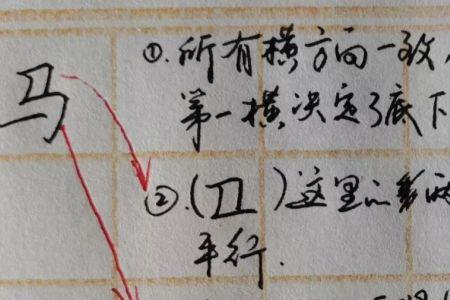 马
①.所有横方向一致,
第一横决定了底下
②.( )这里的
平行.